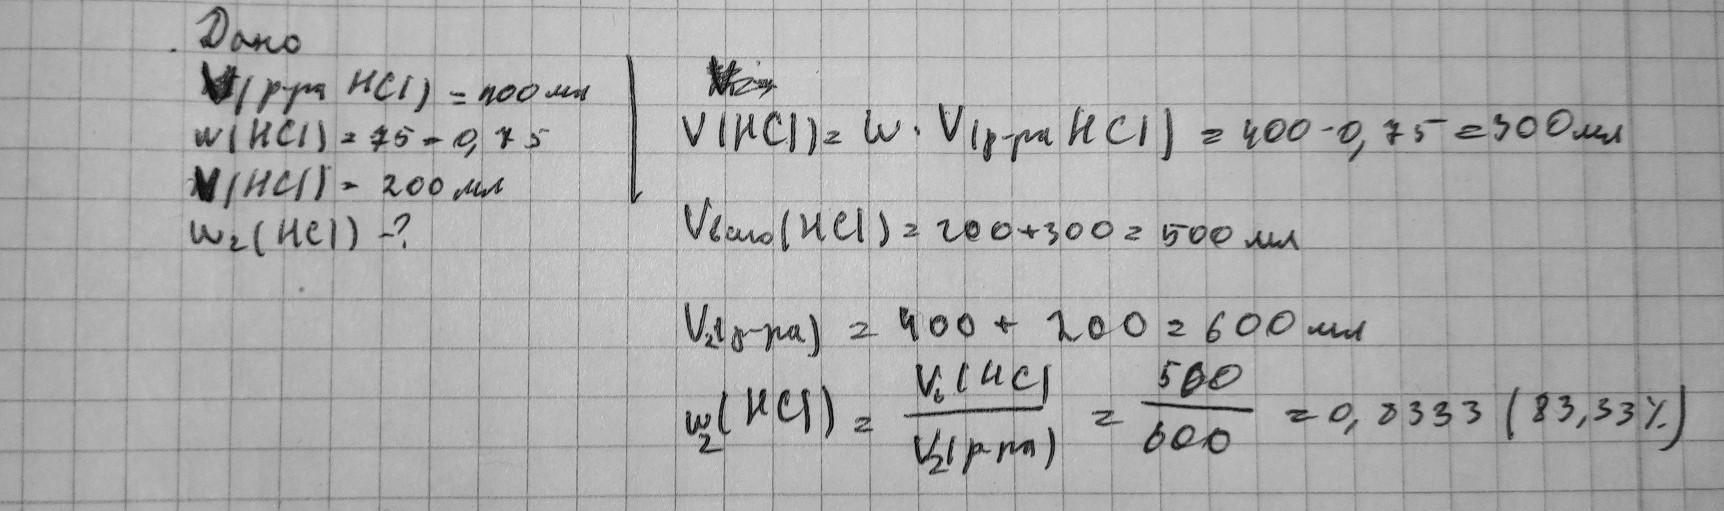 Дано
V(р-ра HCl) = 400 мл
w(HCl) = 75 - 0,75
V(HCl) - 200 мл
w₂(HCl) - ?
V(HCl) = W · V(р-ра HCl) = 400 · 0,75 = 300 мл
Vвсего(HCl) = 200 + 300 = 500 мл
V₂(р-ра) = 400 + 200 = 600 мл
w₂(HCl) = Vв(HCl / V₂(р-ра) = 500 / 600 = 0,8333 (83,33%)